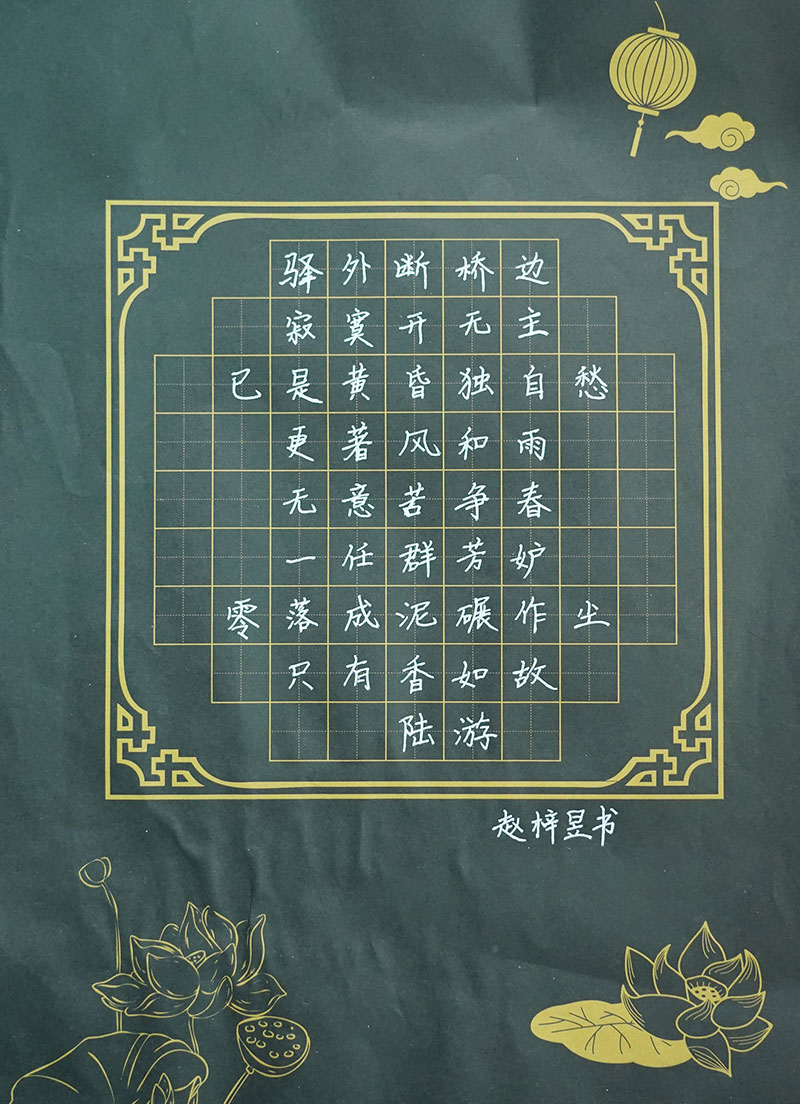 驿外断桥边
寂寞开无主
已是黄昏独自愁
更著风和雨
无意苦争春
一任群芳妒
零落成泥碾作尘
只有香如故
陆游
赵梓昱书